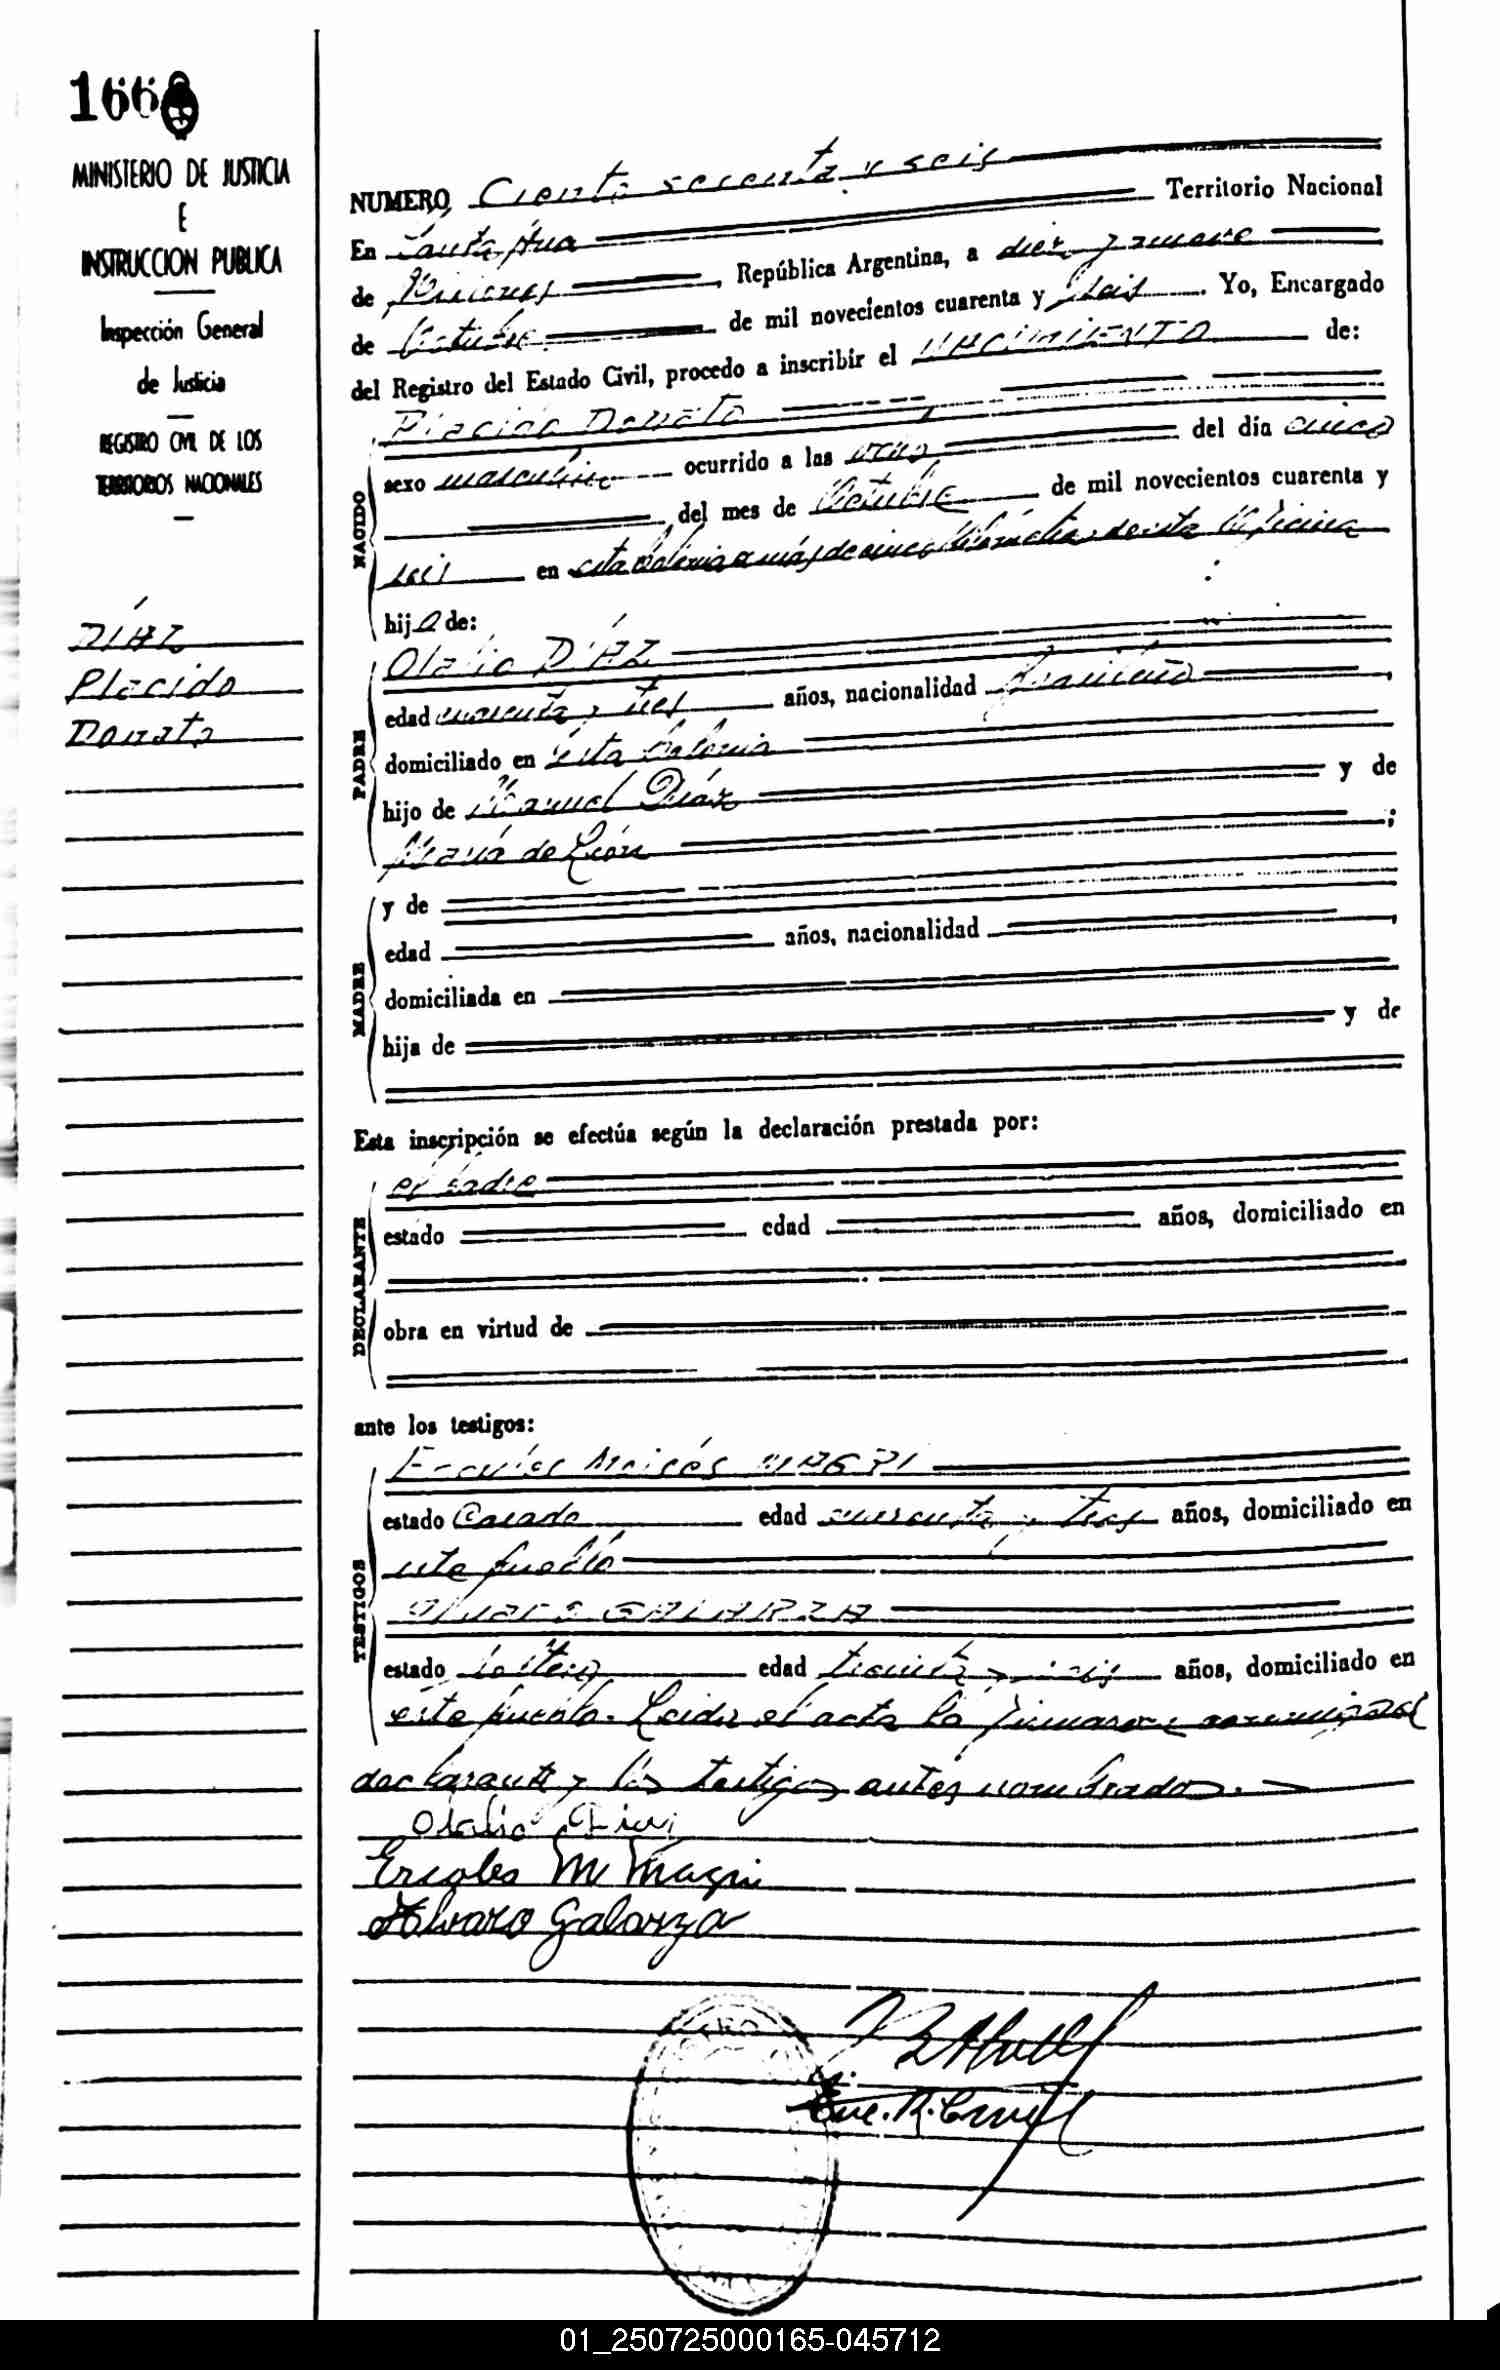 166
MINISTERIO DE JUSTICIA
E
INSTRUCCION PUBLICA
Inspección General
de Justicia
REGISTRO CIVIL DE LOS
TERRITORIOS NACIONALES
DÍAZ
Placido
Donato
NUMERO Ciento sesenta y seis
En Santa Ana Territorio Nacional
de Misiones, República Argentina, a diez y nueve
de Octubre de mil novecientos cuarenta y seis. Yo, Encargado
del Registro del Estado Civil, procedo a inscribir el NACIMIENTO de:
NACIDO
Placido Donato
sexo masculino ocurrido a las ocho del día cinco
del mes de Octubre de mil novecientos cuarenta y
seis en esta Colonia a más de cinco kilómetros de esta Oficina
hijo de:
PADRE
Otalio DÍAZ
edad cuarenta y tres años, nacionalidad brasileño,
domiciliado en esta Colonia
hijo de Manuel Díaz y de
María de León;
MADRE
y de
edad años, nacionalidad,
domiciliada en
hija de y de
Esta inscripción se efectúa según la declaración prestada por:
DECLARANTE
el padre
estado edad años, domiciliado en
obra en virtud de
ante los testigos:
TESTIGOS
Ercoles Moisés MAGRI
estado Casado edad cuarenta y tres años, domiciliado en
este pueblo
Alvaro GALARZA
estado soltero edad treinta y seis años, domiciliado en
este pueblo. Leída el acta la firmaron conmigo el
declarante y los testigos antes nombrados.
Otalio Diaz
Ercoles M Magri
Alvaro Galarza
Enc. R. Civil
01_250725000165-045712